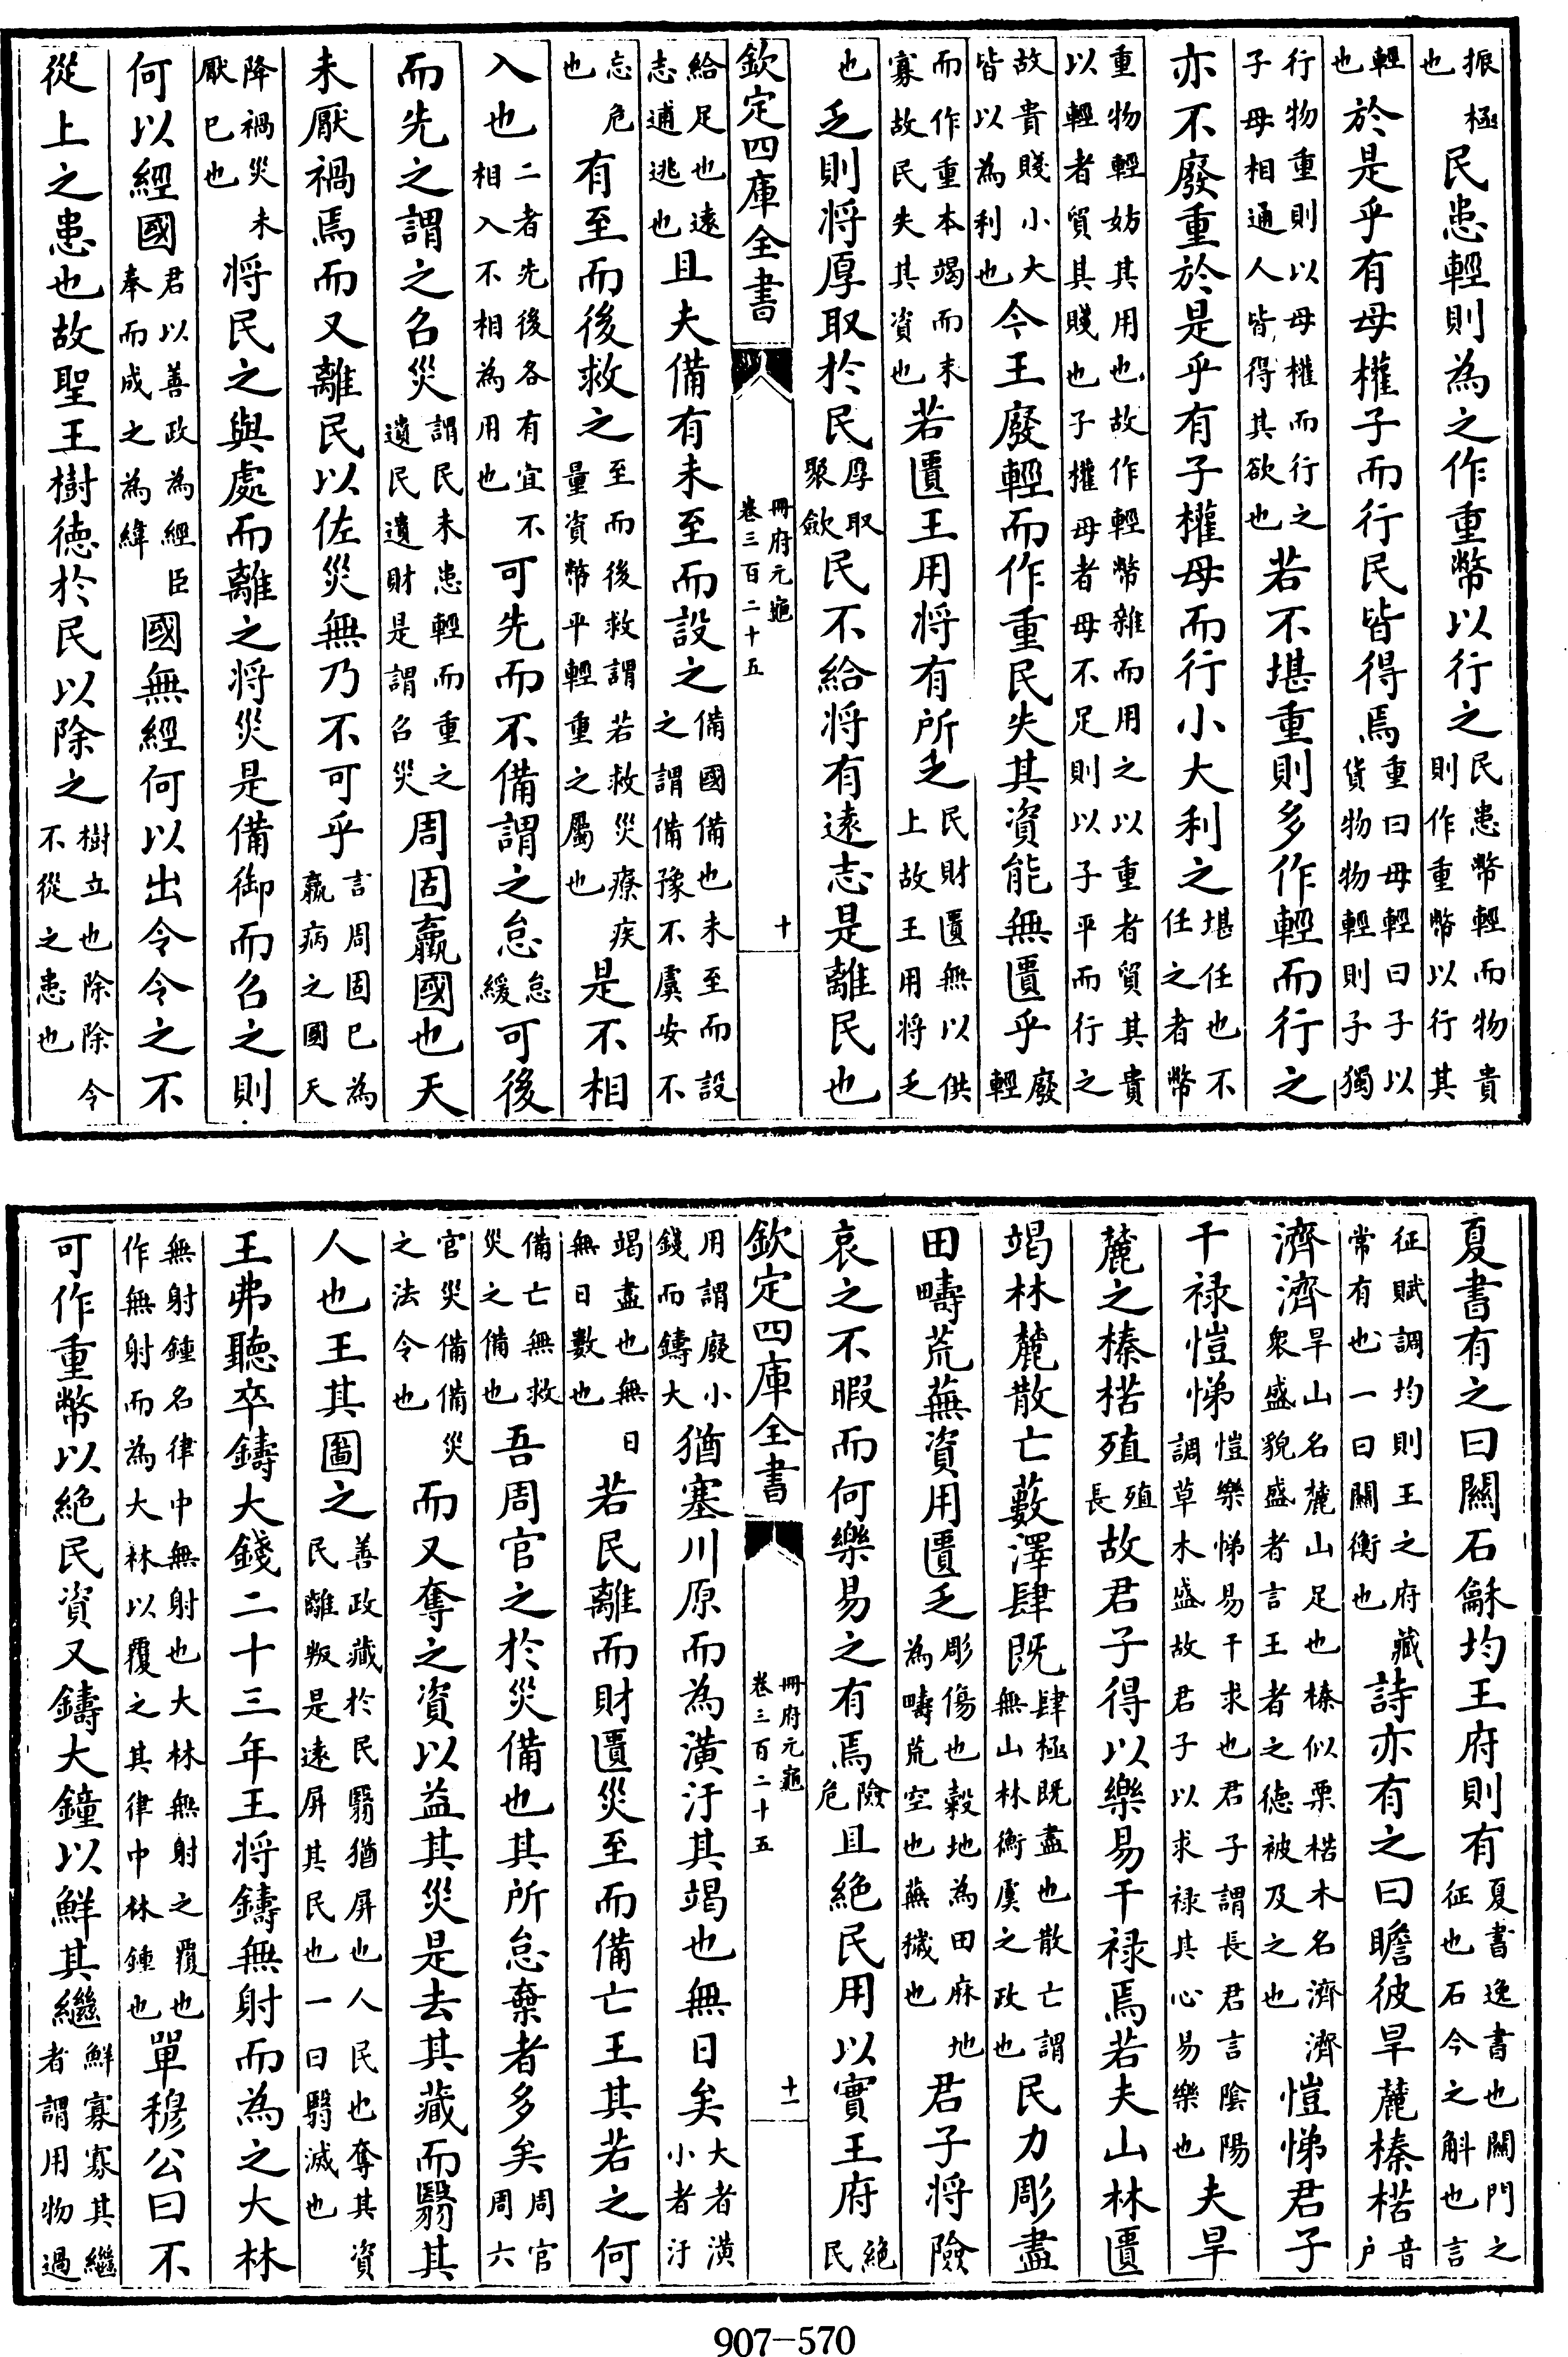 振極也民患輕則為之作重幣以行之民患幣輕而物貴則作重幣以行其
輕也於是乎有母權子而行民皆得焉重曰母輕曰子以貨物物輕則子獨
行物重則以母權而行之子母相通人皆得其欲也若不堪重則多作輕而行之
亦不廢重於是乎有子權母而行小大利之堪任也不任之者幣
重物輕妨其用也故作輕幣雜而用之以重者貿其貴以輕者貿其賤也子權母者母不足則以子平而行之
故貴賤小大皆以為利也今王廢輕而作重民失其資能無匱乎廢輕
而作重本竭而末寡故民失其資也若匱王用将有所乏民財匱無以供上故王用将乏
也乏則将厚取於民厚取聚歛民不給将有遠志是離民也
欽定四庫全書 冊府元龜卷三百二十五 十
給足也遠志逋逃也且夫備有未至而設之備國備也未至而設之謂備豫不虞安不
忘危也有至而後救之至而後救謂若救災療疾量資幣平輕重之屬也是不相
入也二者先後各有宜不相入不相為用也可先而不備謂之怠怠緩可後
而先之謂之召災謂民未患輕而重之遺民遺財是謂召災周固羸國也天
未厭禍焉而又離民以佐災無乃不可乎言周固已為羸病之國天
降禍災未厭已也将民之與處而離之将災是備御而召之則
何以經國君以善政為經臣奉而成之為緯國無經何以出令令之不
從上之患也故聖王樹徳於民以除之樹立也除除令不從之患也
夏書有之曰關石龢均王府則有夏書逸書也關門之征也石今之斛也言
征賦調均則王之府藏常有也一曰關衡也詩亦有之曰瞻彼旱麓榛楛音户
濟濟旱山名麓山足也榛似栗楛木名濟濟衆盛貌盛者言王者之徳被及之也愷悌君子
干禄愷悌愷樂悌易干求也君子謂長君言陰陽調草木盛故君子以求禄其心易樂也夫旱
麓之榛楛殖殖長故君子得以樂易干禄焉若夫山林匱
竭林麓散亡藪澤肆既肆極既盡也散亡謂無山林衡虞之政也民力彫盡
田疇荒蕪資用匱乏彫傷也榖地為田麻地為疇荒空也蕪穢也君子将險
哀之不暇而何樂易之有焉險危且絶民用以實王府絶民
欽定四庫全書 冊府元龜卷三百二十五 十一
用謂廢小錢而鑄大猶塞川原而為潢汙其竭也無日矣大者潢小者汙
竭盡也無日無日數也若民離而財匱災至而備亡王其若之何
備亡無救災之備也吾周官之於災備也其所怠棄者多矣周官周六
官災備備災之法令也而又奪之資以益其災是去其藏而翳其
人也王其圖之善政藏於民翳猶屏也人民也奪其資民離叛是遠屏其民也一曰翳滅也
王弗聽卒鑄大錢二十三年王将鑄無射而為之大林
無射鍾名律中無射也大林無射之覆也作無射而為大林以覆之其律中林鍾也單穆公曰不
可作重幣以絶民資又鑄大鐘以鮮其繼鮮寡寡其繼者謂用物過
907-570